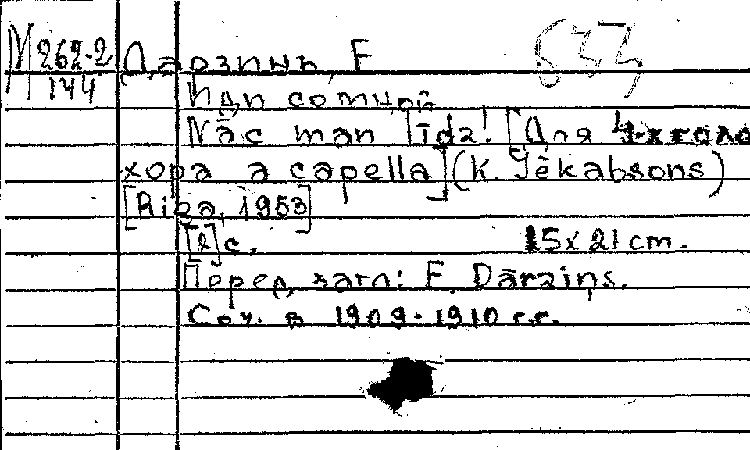 М 262-2 Дарзинь, Е
144
Иди со мной
Nāc man līdz! [Для 4-х гол.
хора a capella] (K. Jēkabsons)
[Riga, 1953]
[2] с. 15x21 cm.
Перед загл: E. Dārziņš.
Соч. в 1909-1910 г.г.